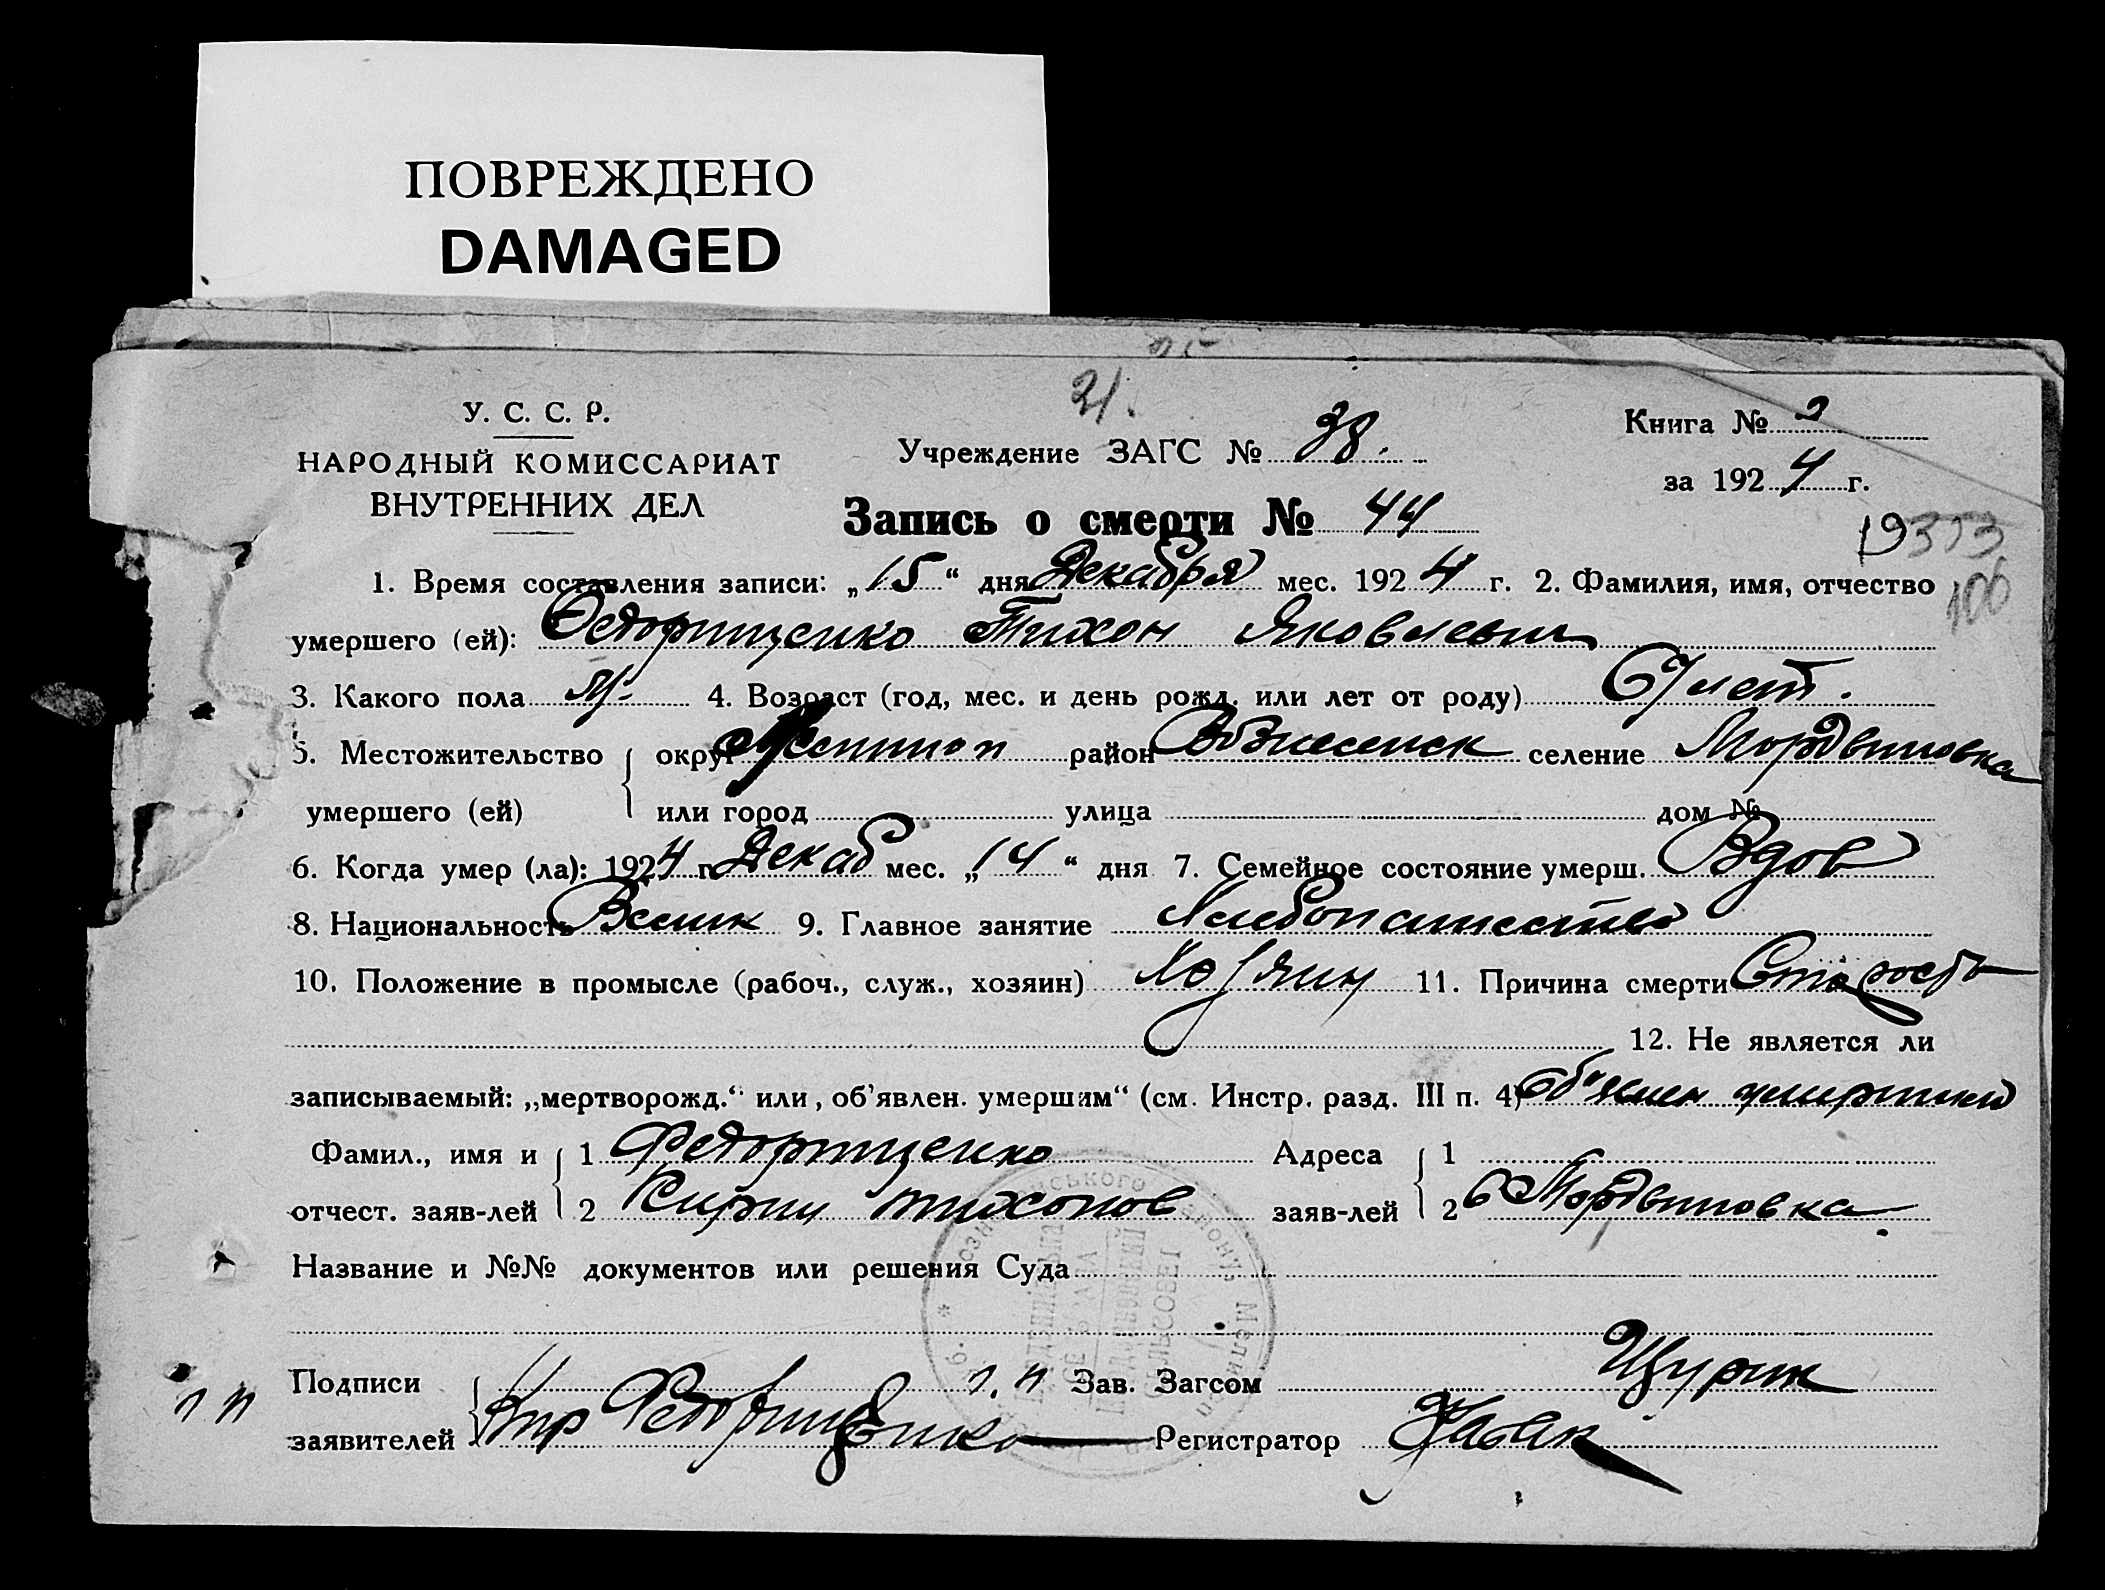 ПОВРЕЖДЕНО
DAMAGED
21.
У. С. С. Р.
НАРОДНЫЙ КОМИССАРИАТ
ВНУТРЕННИХ ДЕЛ
Учреждение ЗАГС № 38.
Книга № 2
за 1924 г.
Запись о смерти № 44
19373
100
1. Время составления записи: „15“ дня Декабря мес. 1924 г. 2. Фамилия, имя, отчество
умершего (ей): Федорищенко Тихон Яковлевич
3. Какого пола М. 4. Возраст (год, мес. и день рожд. или лет от роду) 67 лет.
5. Местожительство округ район Вознесенск селение Мордвиновка
умершего (ей) или город улица дом №
6. Когда умер (ла): 1924 г. Декаб мес. „14“ дня 7. Семейное состояние умерш. Вдов
8. Национальность Велик 9. Главное занятие Хлебопашество
10. Положение в промысле (рабоч., служ., хозяин) Хозяин 11. Причина смерти Старость
12. Не является ли
записываемый: „мертворожд.“ или, об'явлен. умершим“ (см. Инстр. разд. III п. 4) Об'явлен умершим
Фамил., имя и 1 Федорищенко Адреса 1
отчест. заяв-лей 2 Кирил тихонов заяв-лей 2 с Мордвиновка.
Название и №№ документов или решения Суда
Подписи п. п Зав. Загсом Щурик
п п
заявителей Кир Федорищенко Регистратор